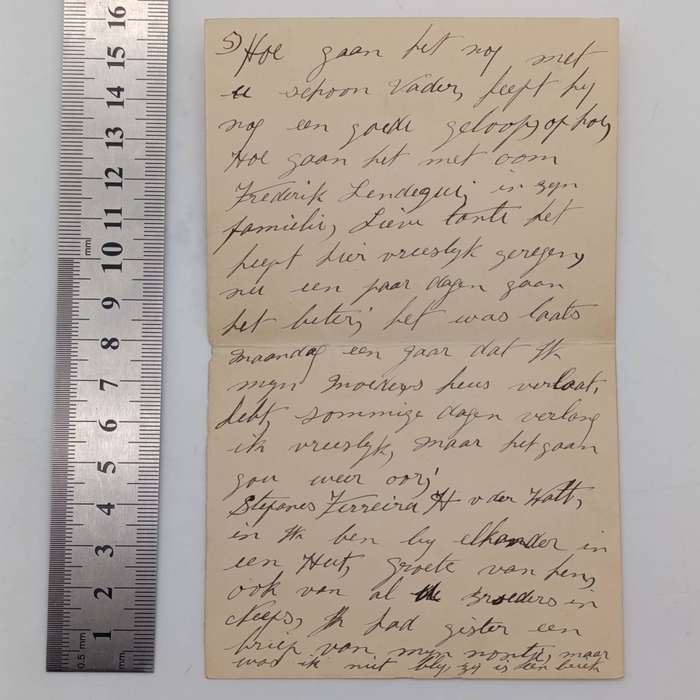 5) Hoe gaan het nog met
u schoon Vader, heeft hy
nog een goede geloof, op hoi,
Hoe gaan het met oom
Frederik Lendequi, in zyn
familie, Lieve tante het
heeft hier vreeslyk geregen,
nu een paar dagen gaan
het beter; het was laats
maandag een jaar dat Ik
myn Moeders heus verlaat,
hebt, sommige dagen verlang
ik vreeslyk, maar het gaan
gou weer oor;
Stefanes Ferreira H v der Watt,
in Ik ben by elkander in
een Hut, groete van hen,
ook van al u Broeders in
Neefs, Ik had gister een
brief van myn nontje, maar
was ik niet bly, zy is een beste
16
15
14
13
12
11
10
mm
9
8
7
6
5
4
3
2
1
0.5 mm
mm